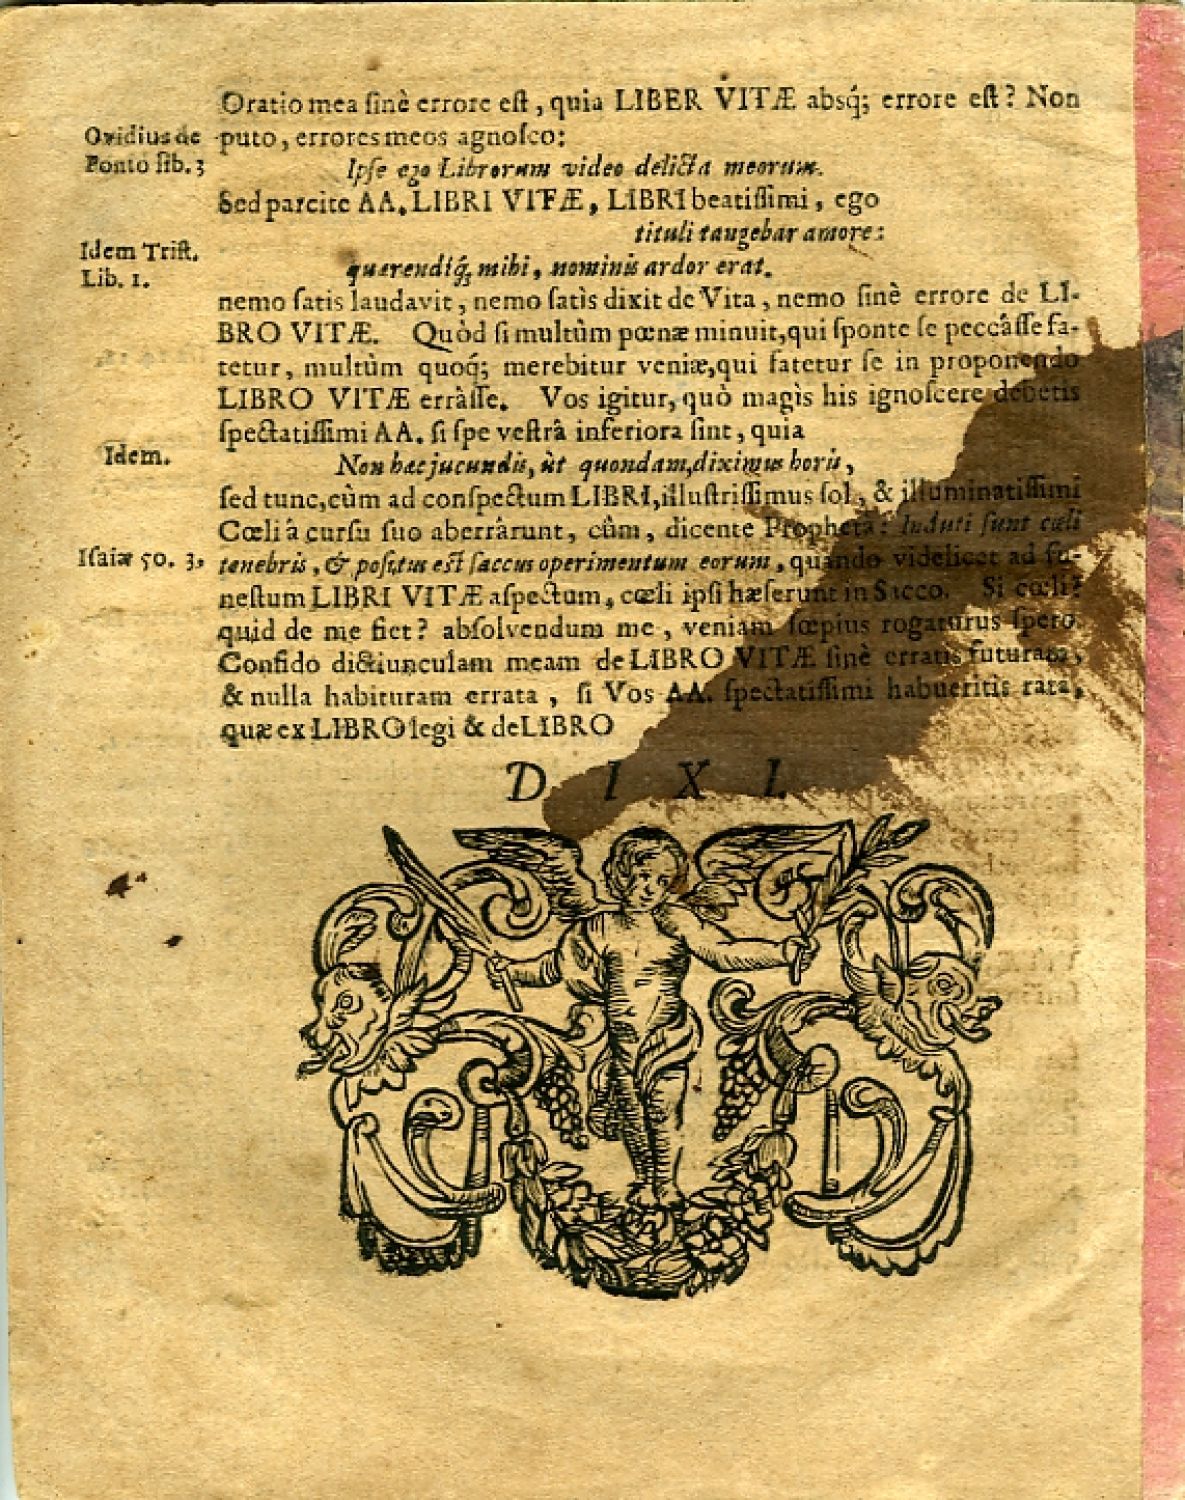 Oratio mea sinè errore est, quia LIBER VITÆ absq́; errore est? Non
Ovidius de
Ponto lib. 3
puto, errores meos agnosco:
Ipse ego Librorum video delicta meorum.
Sed parcite AA. LIBRI VITÆ, LIBRI beatissimi, ego
tituli tangebar amore:
Idem Trist.
Lib. 1.
quærendiq́; mihi, nominis ardor erat.
nemo satis laudavit, nemo satìs dixit de Vita, nemo sinè errore de LI-
BRO VITÆ. Quòd si multùm pœnæ minuit, qui sponte se peccâsse fa-
tetur, multùm quoq́; merebitur veniæ, qui fatetur se in proponendo
LIBRO VITÆ errâsse. Vos igitur, quò magìs his ignoscere debetis
spectatissimi AA. si spe vestrâ inferiora sint, quia
Idem.
Non hæc jucundis, ùt quondam, diximus horis,
sed tunc, cùm ad conspectum LIBRI, illustrissimus sol, & illuminatissimi
Cœli â cursu suo aberrârunt, cûm, dicente Propheta: Induti sunt cœli
Isaiæ 50. 3.
tenebris, & positus est saccus operimentum eorum, quando videlicet ad fu-
nestum LIBRI VITÆ aspectum, cœli ipsi hæserunt in Sacco. Si cœli?
quid de me fiet? absolvendum me, veniam sœpius rogaturus spero.
Confido dictiunculam meam de LIBRO VITÆ sinè erratis futuram,
& nulla habituram errata, si Vos AA. spectatissimi habueritis rata,
quæ ex LIBRO legi & de LIBRO
D I X I.